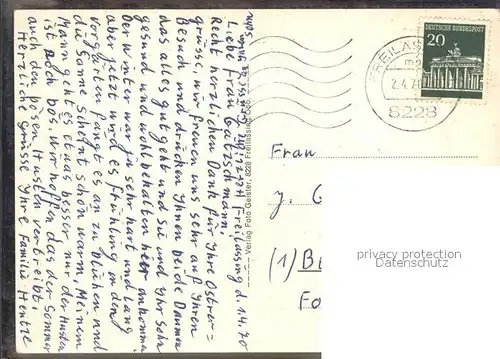 Freilassing d. 1.4.70
Liebe Frau
Recht herzlichen Dank für Ihre Oster=
grüsse, wir freuen uns sehr auf Ihren
Besuch und drücken Ihnen beide Daumen
das alles gut geht und Sie und Ihr Sohn
gesund und wohlbehalten hier ankommen.
Der Winter war sehr hart und lang
aber jetzt wird es Frühling in den
Vorgärten fängt es an zu blühen und
die Sonne scheint schön warm, Meinem
Mann geht es etwas besser, nur der Husten
ist noch bös. Wir hoffen das der Sommer
auch den bösen Husten vertreibt.
Herzliche Grüsse Ihre Familie Hentze
Verlag Foto Geister, 8228 Freilassing Obb.
DEUTSCHE BUNDESPOST
20
FREILAS
2.4.7
8228
Frau
J. G
(1) B
Fo
privacy protection
Datenschutz